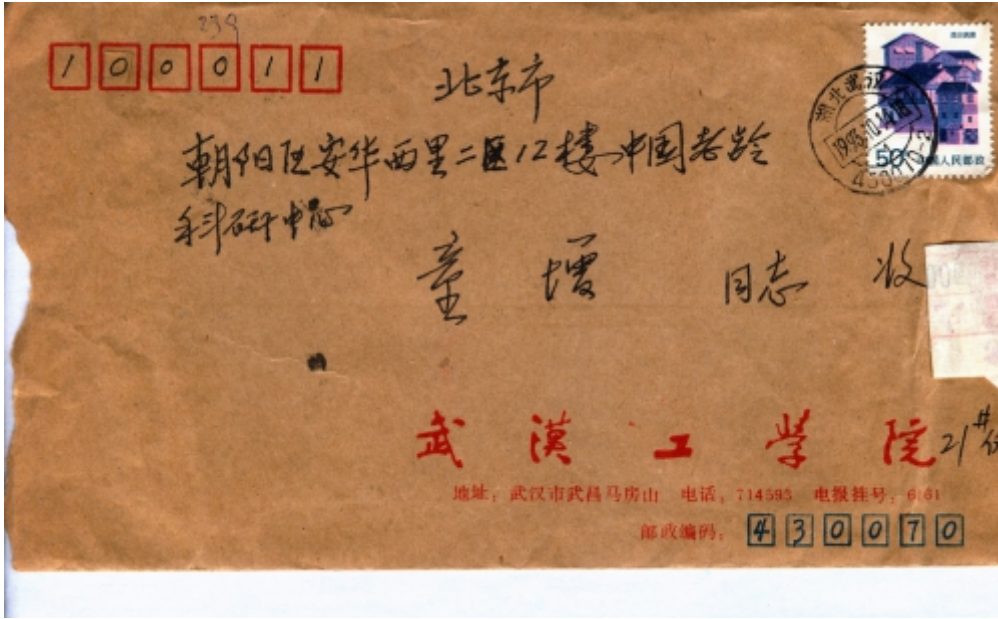 239
100011
北京市
朝阳区安华西里二区12楼中国老龄
科研中心
童 墁 同志 收
湖北武汉
1993.10.14.18
50 中国人民邮政
武汉工学院
21#
地址：武汉市武昌马房山 电话：714593 电报挂号：6161
邮政编码：430070